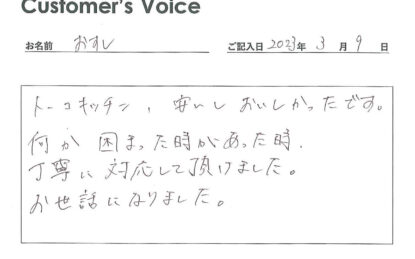 Customer's Voice
お名前 おすし ご記入日 2023年 3月 9日
トーコキッチン、安いしおいしかったです。
何か困まった時があった時、
丁寧に対応して頂けました。
お世話になりました。